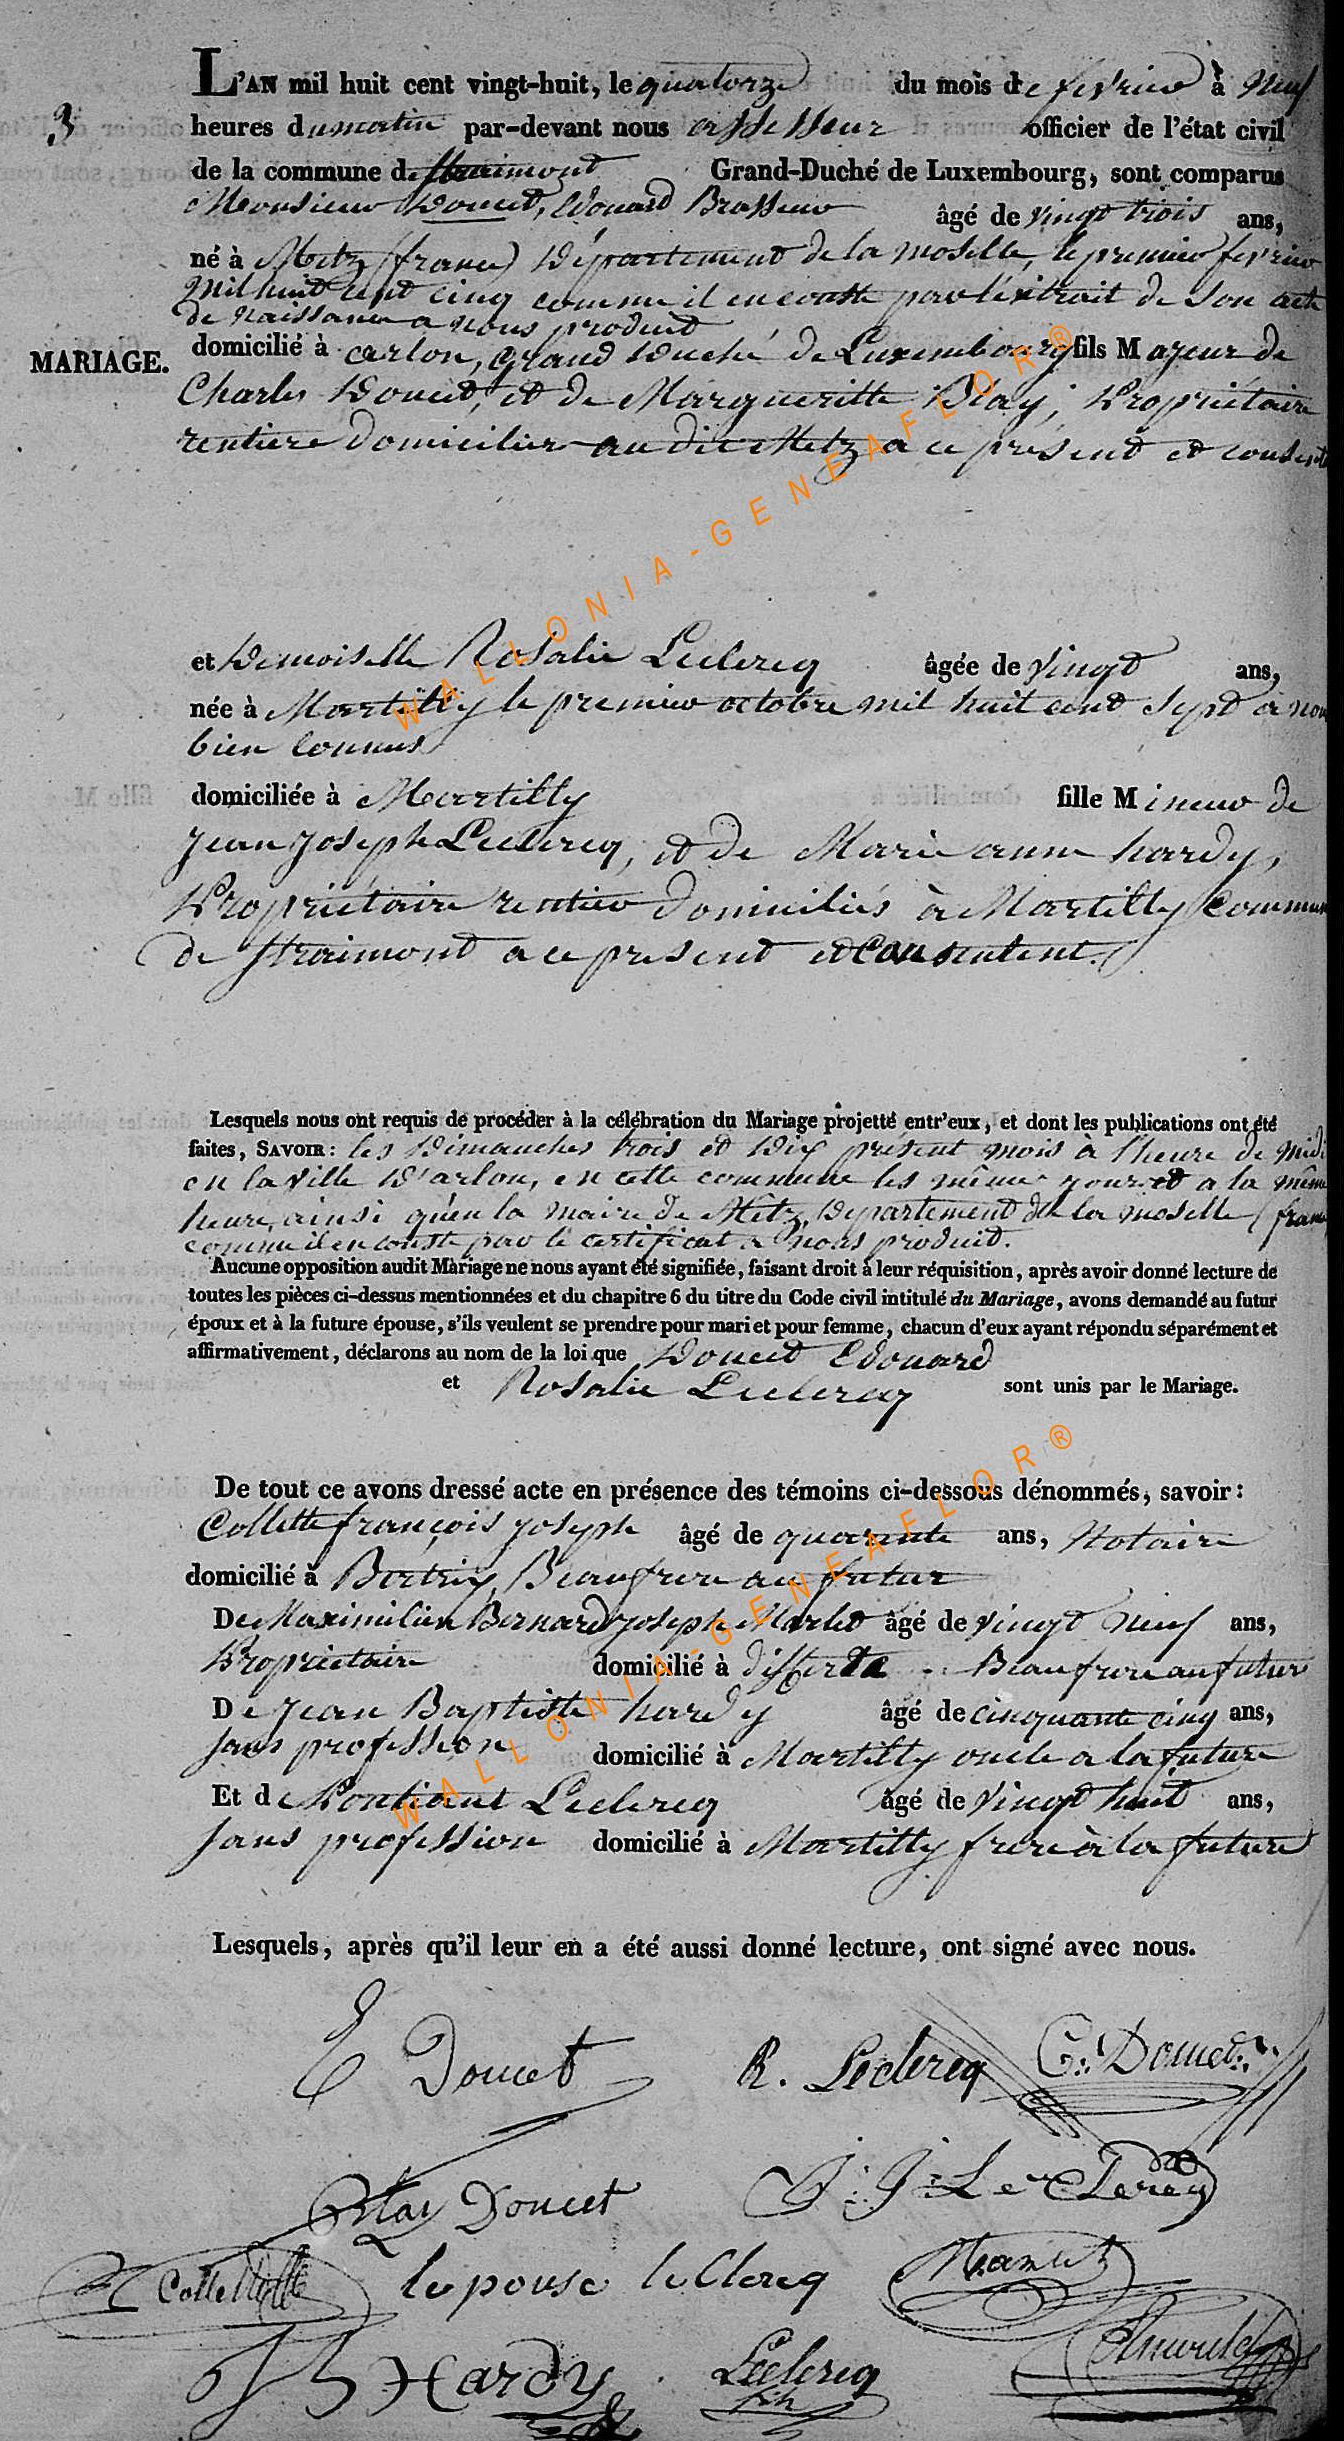 3
L'AN mil huit cent vingt-huit, le quatorze du mois de fevrier à Neuf
heures du matin par-devant nous assesseur officier de l'état civil
de la commune de Straimont Grand-Duché de Luxembourg, sont comparus
Monsieur Doucet, Edouard Brasseur âgé de vingt trois ans,
né à Metz (france) Département de la moselle, le premier fevrier
mil huit cent cinq comme il en conste par l'extrait de son acte
de naissance a nous produit
MARIAGE.
domicilié à arlon, Grand Duché de Luxembourg fils Majeur de
Charles Doucet, et de Margueritte Blay, Propriétaire
rentiere domicilier au dit Metz a ce présent et consent
et Demoiselle Rosalie Leclercq âgée de vingt ans,
née à Martilly le premier octobre mil huit cent sept a nous
bien connus
domiciliée à Martilly fille Mineur de
Jean Joseph Leclercq, et de Marie anne hardy,
Propriétaire rentier domiciliés à Martilly Commune
de Straimont a ce present et consentent.
Lesquels nous ont requis de procéder à la célébration du Mariage projetté entr'eux, et dont les publications ont été
faites, SAVOIR: les Dimanches trois et Dix présent mois à l'heure de midi
en la ville D'arlon, en cette commune les même jour et a la même
heure, ainsi qu'en la mairie de Metz, Département de la moselle (france
comme il en conste par le certificat a nous produit.
Aucune opposition audit Mariage ne nous ayant été signifiée, faisant droit à leur réquisition, après avoir donné lecture de
toutes les pièces ci-dessus mentionnées et du chapitre 6 du titre du Code civil intitulé du Mariage, avons demandé au futur
époux et à la future épouse, s'ils veulent se prendre pour mari et pour femme, chacun d'eux ayant répondu séparément et
affirmativement, déclarons au nom de la loi que Doucet Edouard
et Rosalie Leclercq sont unis par le Mariage.
De tout ce avons dressé acte en présence des témoins ci-dessous dénommés, savoir:
Collette françois joseph âgé de quarante ans, Notaire
domicilié à Bertrix, Beaufrere au futur
De Maximilien Bernard joseph Marlet âgé de vingt neuf ans,
Propriétaire domicilié à differte Beaufrere au futur
De Jean Baptiste hardy âgé de cinquante cinq ans,
sans profession domicilié à Martilly oncle a la future
Et de Pontiant Leclercq âgé de vingt huit ans,
sans profession domicilié à Martilly frere à la future
Lesquels, après qu'il leur en a été aussi donné lecture, ont signé avec nous.
E Doucet R. Leclercq C. Doucet
Blay Doucet J. J. Le Clercq
Collette lepouse leClercq
Hardy Leclercq fils
WALLONIA-GENEAFLOR®
WALLONIA-GENEAFLOR®